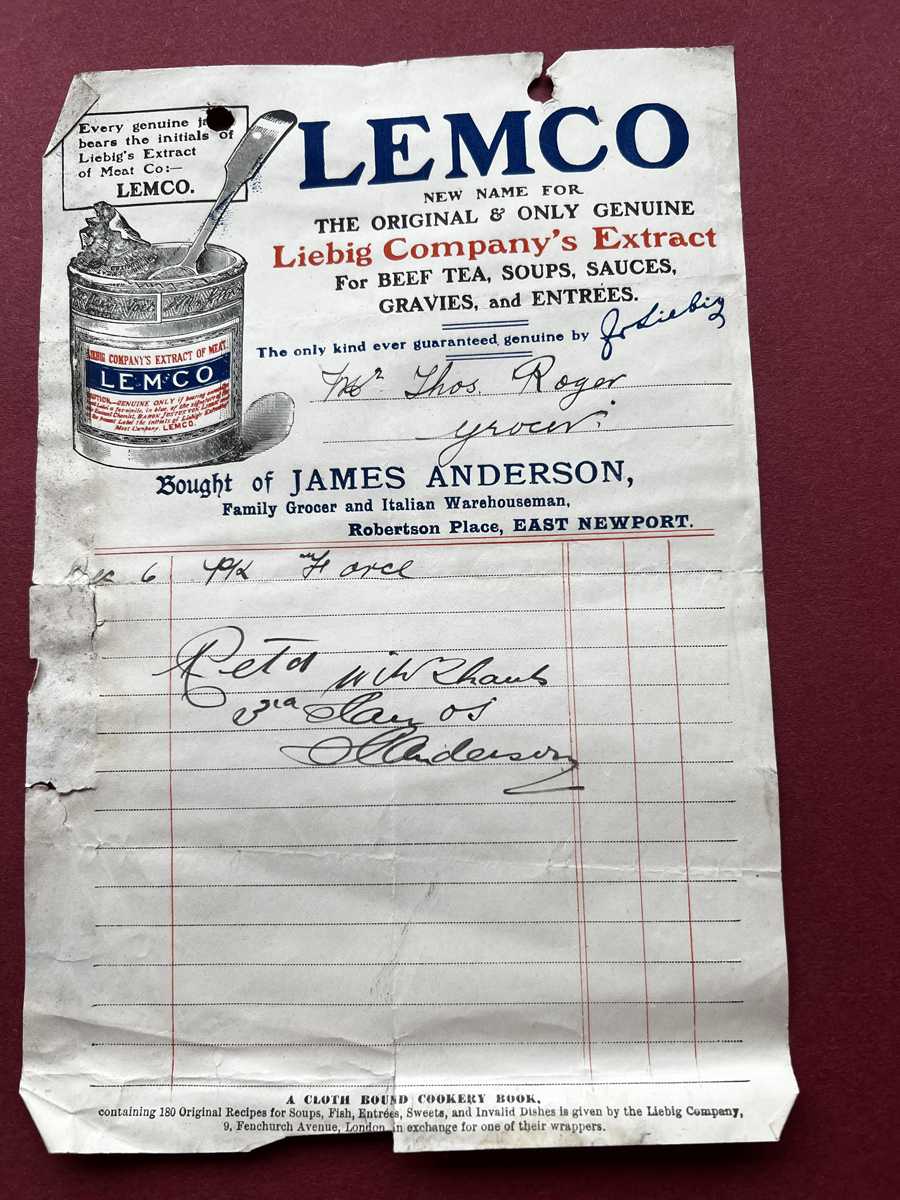 Every genuine
bears the initials of
Liebig's Extract
of Meat Co:—
LEMCO.
LEMCO
NEW NAME FOR
THE ORIGINAL & ONLY GENUINE
Liebig Company's Extract
For BEEF TEA, SOUPS, SAUCES,
GRAVIES, and ENTRÉES.
The only kind ever guaranteed genuine by J v Liebig
LIEBIG COMPANY'S EXTRACT OF MEAT.
LEMCO
CAUTION.—GENUINE ONLY if bearing
LEMCO.
Mr Thos. Roger
grocer
Bought of JAMES ANDERSON,
Family Grocer and Italian Warehouseman,
Robertson Place, EAST NEWPORT.
6 Force
Retd with Thanks
3rd Jan 05
Anderson
A CLOTH BOUND COOKERY BOOK,
containing 180 Original Recipes for Soups, Fish, Entrées, Sweets, and Invalid Dishes is given by the Liebig Company,
9, Fenchurch Avenue, London in exchange for one of their wrappers.